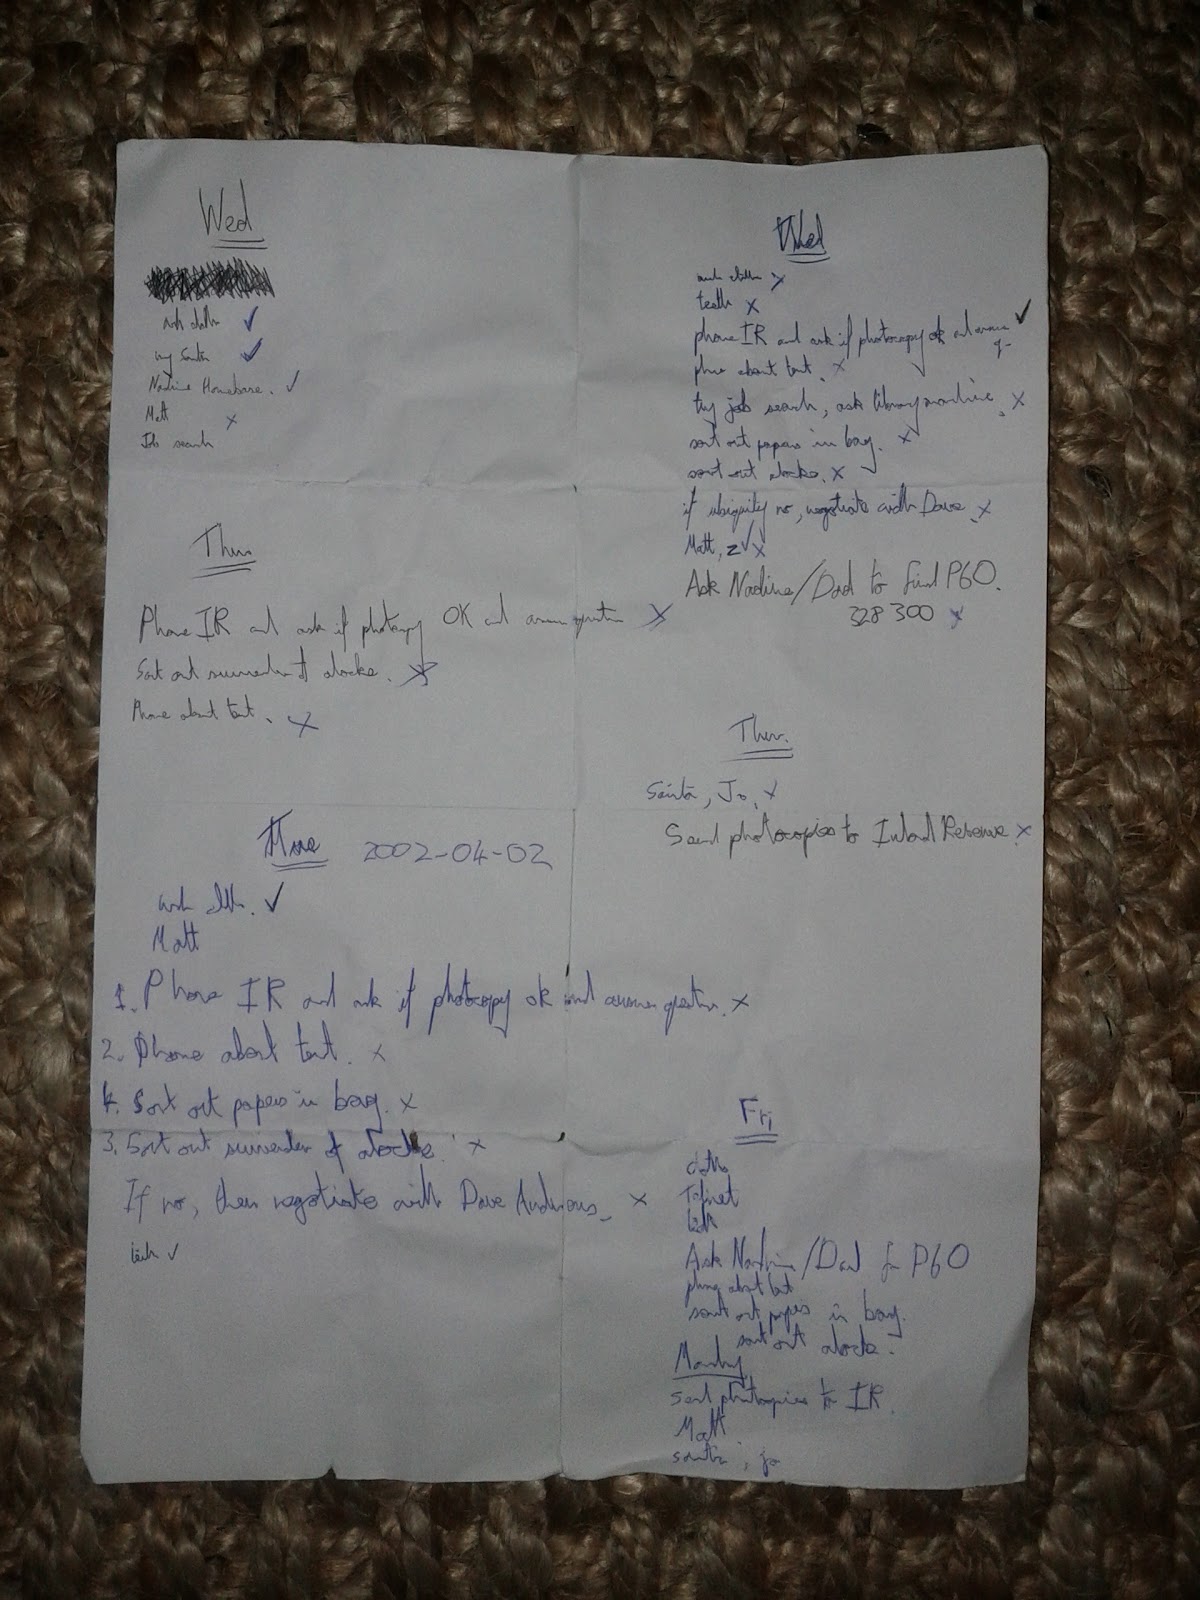 Wed
wash cloths ✓
ring Santa ✓
Nadine Homebase. ✓
Matt ×
Job search
Thur
Phone IR and ask if photocopy OK and answer question ×
Sort out surrender of stocks. ×
Phone about tent. ×
Tue 2002-04-02
wash cloths. ✓
Matt
1. Phone IR and ask if photocopy ok and answer question. ×
2. Phone about tent. ×
4. Sort out papers in bag. ×
3. Sort out surrender of stocks. ×
If no, then negotiate with Dave ×
teeth ✓
Wed
wash cloths ×
teeth ×
phone IR and ask if photocopy ok and answer q- ✓
phone about tent. ×
try job search, ask library machine. ×
sort out papers in bag. ×
sort out stocks. ×
if ubiquity no, negotiate with Dave. ×
Matt, 2 ✓×
Ask Nadine/Dad to find P60.
328 300 ×
Thur.
Santa, Jo. ×
Send photocopies to Inland Revenue ×
Fri
cloths
teeth
Ask Nadine/Dad for P60
phone about tent
sort out papers in bag.
sort out stocks.
Monday
send photocopies to IR.
Matt
santa, jo